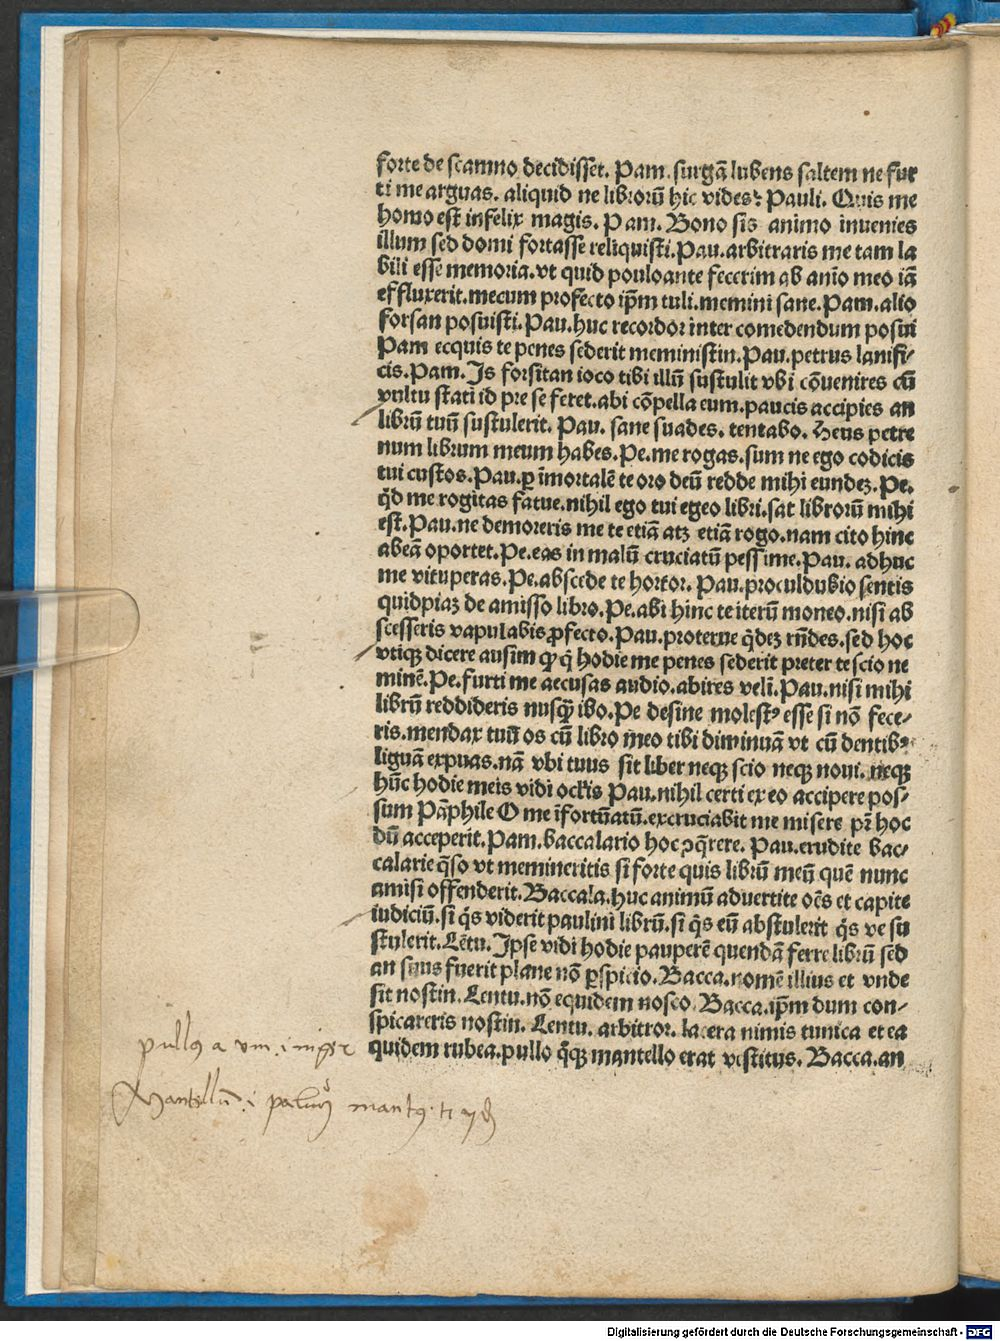 forte de scamno decidisset. Pam. surgā lubens saltem ne fur
ti me arguas. aliquid ne librorū hic vides? Pauli. Quis me
homo est infelix magis. Pam. Bono sis animo inuenies
illum sed domi fortasse reliquisti. Pau. arbitraris me tam la
bili esse memoria. vt quid pouloante fecerim ab anīo meo iā
effluxerit. mecum profecto ip̄m tuli. memini sane. Pam. alio
forsan posuisti. Pau. huc recordor inter comedendum posui
Pam ecquis te penes sederit meministin. Pau. petrus lanifi-
cis. Pam. Is forsitan ioco tibi illū sustulit vbi cōuenires cū
vultu stati id pre se feret. abi cōpella eum. paucis accipies an
librū tuū sustulerit. Pau. sane suades. tentabo. Heus petre
num librum meum habes. Pe. me rogas. sum ne ego codicis
tui custos. Pau. ꝑ īmortalē te oro deū redde mihi eundeꝫ. Pe.
qd̄ me rogitas fatue. nihil ego tui egeo libri. sat librorū mihi
est. Pau. ne demoreris me te etiā atꝫ etiā rogo. nam cito hinc
abeā oportet. Pe. eas in malū cruciatū pessime. Pau. adhuc
me vituperas. Pe. abscede te hortor. Pau. proculdubio sentis
quidpiaꝫ de amisso libro. Pe. abi hinc te iterū moneo. nisi ab
scesseris vapulabis ꝓfecto. Pau. proterue q̄deꝫ rn̄des. sed hoc
vtiqꝫ dicere ausim ꝙ q̄ hodie me penes sederit preter te scio ne
minē. Pe. furti me accusas audio. abires velī. Pau. nisi mihi
librū reddideris nusꝙ̄ ibo. Pe desine molestꝰ esse si nō fece-
ris. mendax tuū os cū libro meo tibi diminuā vt cū dentibꝰ
liguā expuas. nā vbi tuus sit liber neqꝫ scio neqꝫ noui. neqꝫ
hūc hodie meis vidi ocl̄is Pau. nihil certi ex eo accipere pos-
sum Pāphile O me īfortūatū. excruciabit me misere pr̄ hoc
dū acceperit. Pam. baccalario hoc ꝯq̄rere. Pau. erudite bac-
calarie q̄so vt memineritis si forte quis librū meū quē nunc
amisi offenderit. Baccala. huc animū aduertite oēs et capite
iudiciū. si q̄s viderit paulini librū. si q̄s eū abstulerit q̄s ve su
stulerit. Lētu. Ipse vidi hodie pauperē quendā ferre librū sed
an suus fuerit plane nō ꝑspicio. Bacca. nomē illius et vnde
sit nostin. Lentu. nō equidem nosco. Bacca. ip̄m dum con-
spicareris nostin. Lentu. arbitror. lacera nimis tunica et ea
quidem rubea. pullo q̄qꝫ mantello erat vestitus. Bacca. an
pullꝰ a vm .i. niger
Mantellū .i.